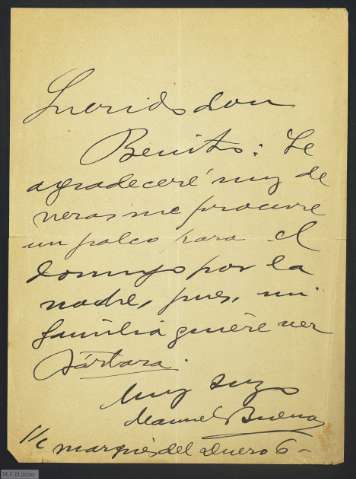 Querido don
Benito: Le
agradeceré muy de
veras me procure
un palco para el
domingo por la
noche, pues, mi
familia quiere ver
Bárbara.
Muy suyo
Manuel Bueno
S/c marqués del Duero 6-